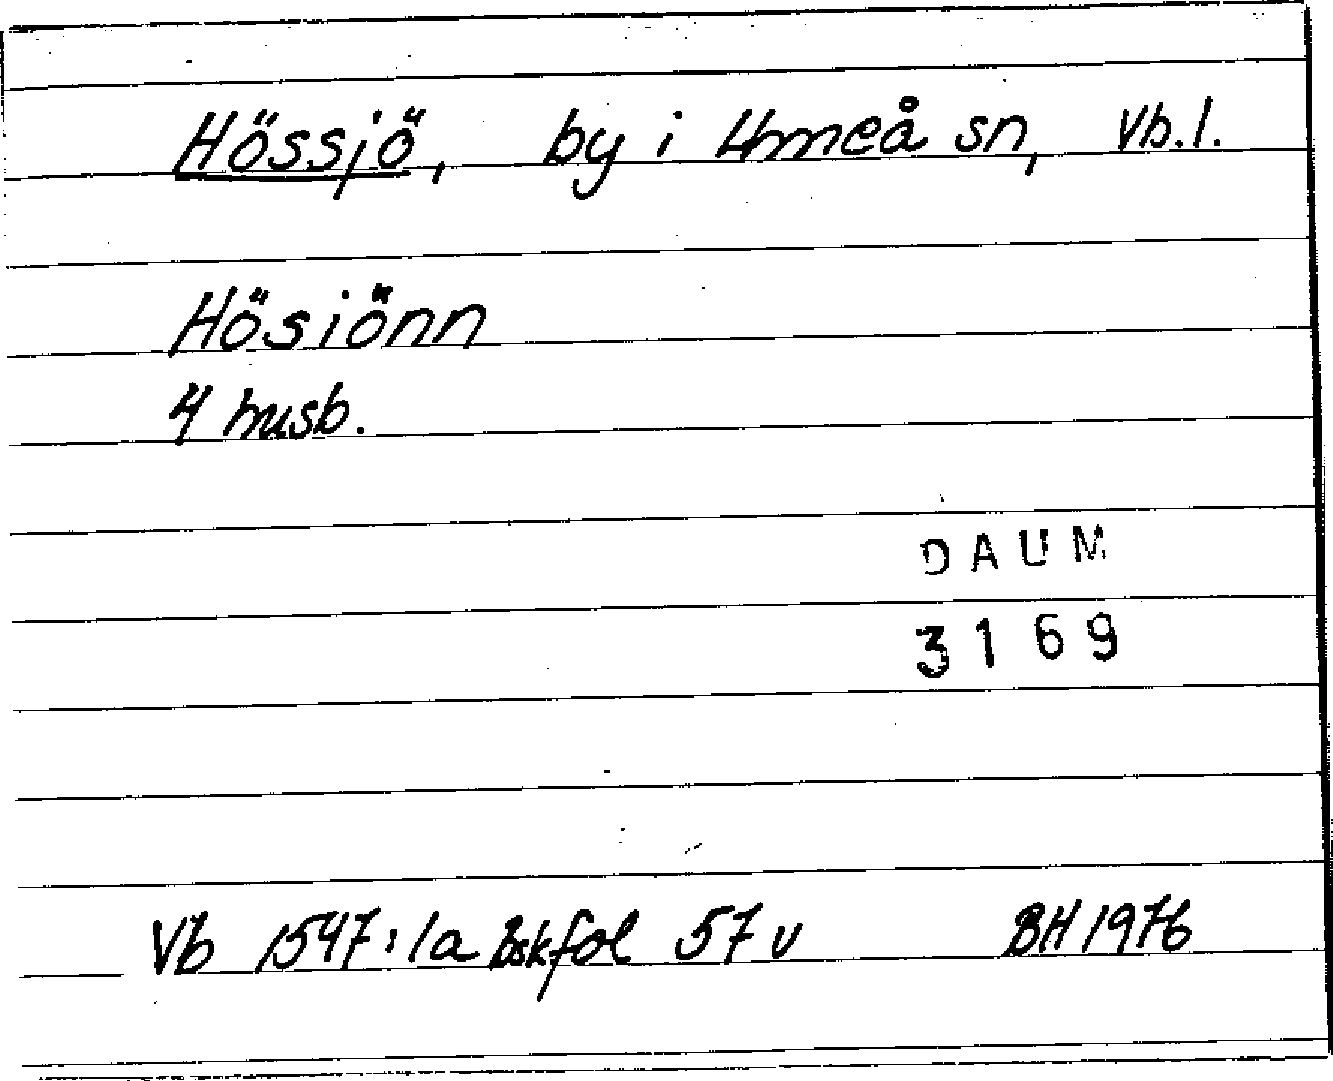 Hössjö, by i Umeå sn, Vb.l.
Hösiönn
4 husb.
DAUM
3169
Vb 1547:1a bskfol 57 v BH 1976